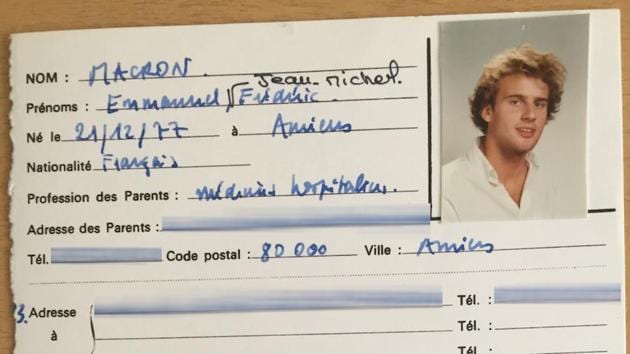 NOM : MACRON.
Jean-Michel.
Prénoms : Emmanuel, Frédéric.
Né le 21/12/77 à Amiens
Nationalité Français
Profession des Parents : médecins hospitaliers.
Adresse des Parents :
Tél. Code postal : 80 000 Ville : Amiens
Adresse Tél. :
à Tél. :
Tél. :